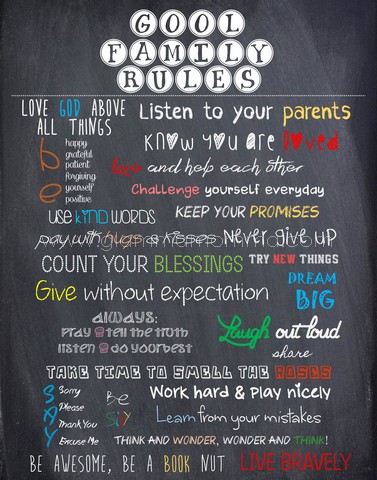 GOOL
FAMILY
RULES
LOVE GOD ABOVE
ALL THINGS
Listen to your parents
be
happy
grateful
patient
forgiving
yourself
positive
know you are loved
love and help each other
Challenge yourself everyday
use kind words
KEEP YOUR PROMISES
pay with hugs & kisses
Never give up
COUNT YOUR BLESSINGS
TRY NEW THINGS
Give without expectation
DREAM
BIG
always:
pray tell the truth
listen do your best
Laugh out loud
share
TAKE TIME TO SMELL THE ROSES
SAY
Sorry
Please
Thank You
Excuse Me
Be
Silly
Work hard & Play nicely
Learn from your mistakes
THINK AND WONDER, WONDER AND THINK!
BE AWESOME, BE A BOOK NUT
LIVE BRAVELY